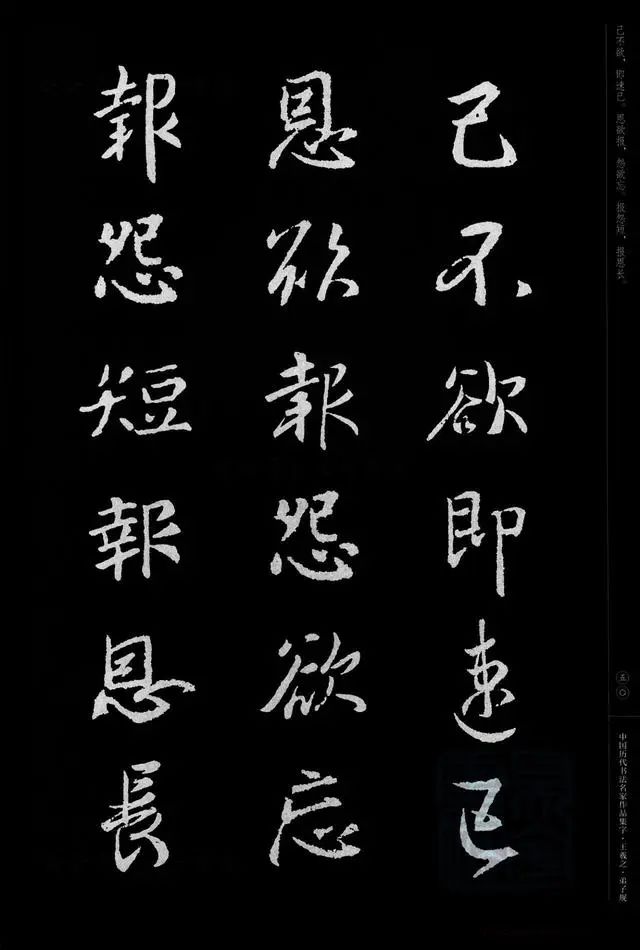 己不欲即速已
恩欲報怨欲忘
報怨短報恩長
己不欲，即速已。恩欲报，怨欲忘。报怨短，报恩长。
五〇
中国历代书法名家作品集字·王羲之·弟子规